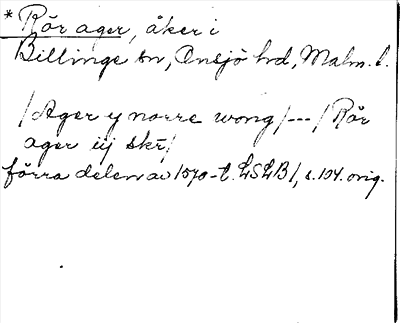 * Rör ager, åker i
Billinge sn, Onsjö hd, Malm. l.
/Ager y norre wong/---/Rör
ager iij skr/
förra delen av 1570-t. LSLB1, s. 104. orig.